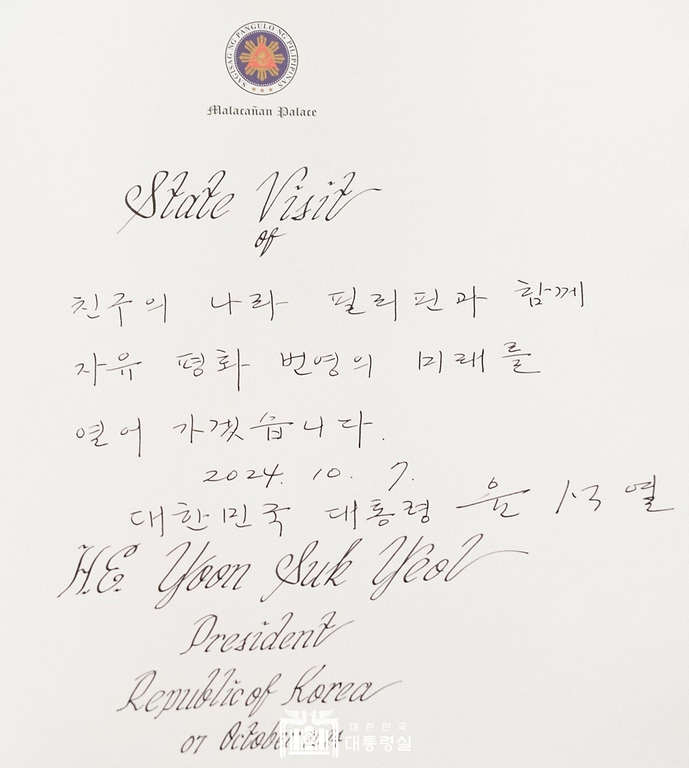 SAGISAG NG PANGULO NG PILIPINAS
Malacañan Palace
State Visit
of
친구의 나라 필리핀과 함께
자유 평화 번영의 미래를
열어 가겠습니다.
2024. 10. 7.
대한민국 대통령 윤석열
H.E. Yoon Suk Yeol
President
Republic of Korea
07 October 2024
대한민국
대통령실